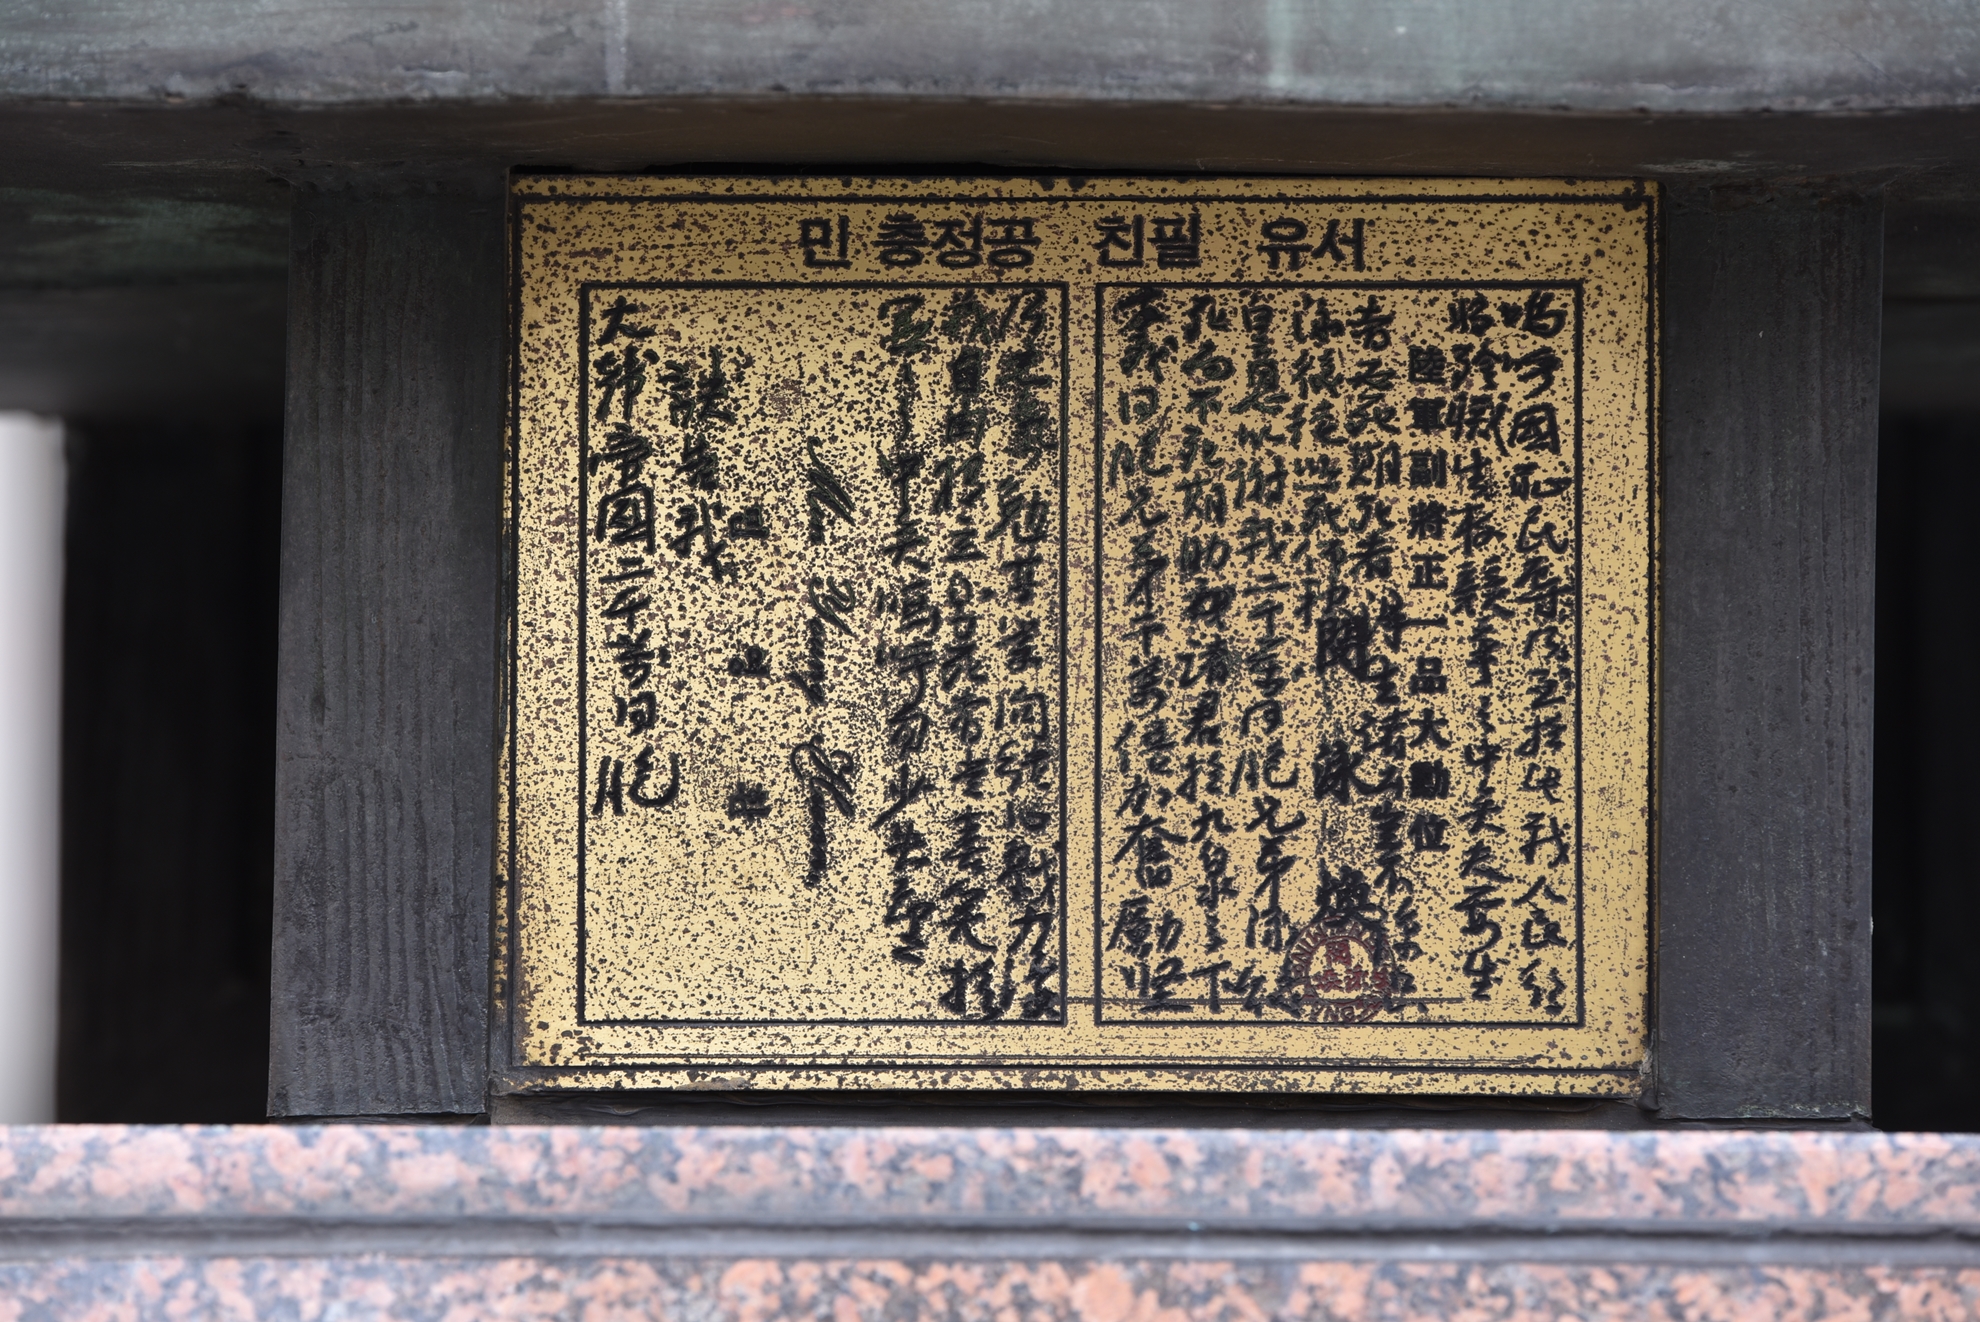 민 충정공 친필 유서
嗚呼國恥民辱乃至於此我人民行
將殄滅生存競爭之中矣夫要生
陸軍副將正一品大勳位
者必死期死者得生諸公豈不諒只
泳煥徒以一死仰報
閔泳煥
皇恩以謝我二千萬同胞兄弟泳煥
死而不死期助我諸君於九泉之下
幸我同胞兄弟千萬倍加奮勵堅
乃志氣勉其學問結心戮力復
我自由獨立則死者當喜笑於
冥冥之中矣嗚呼勿少失望
訣告我
大韓帝國二千萬同胞